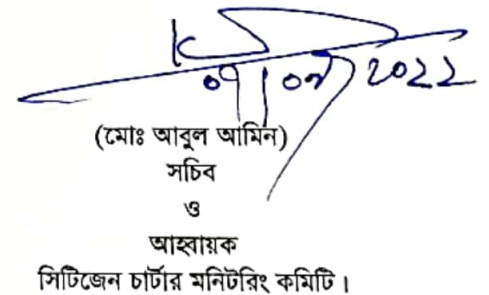 ০৭/০৮/২০২২
(মোঃ আবুল আমিন)
সচিব
ও
আহ্বায়ক
সিটিজেন চার্টার মনিটরিং কমিটি।